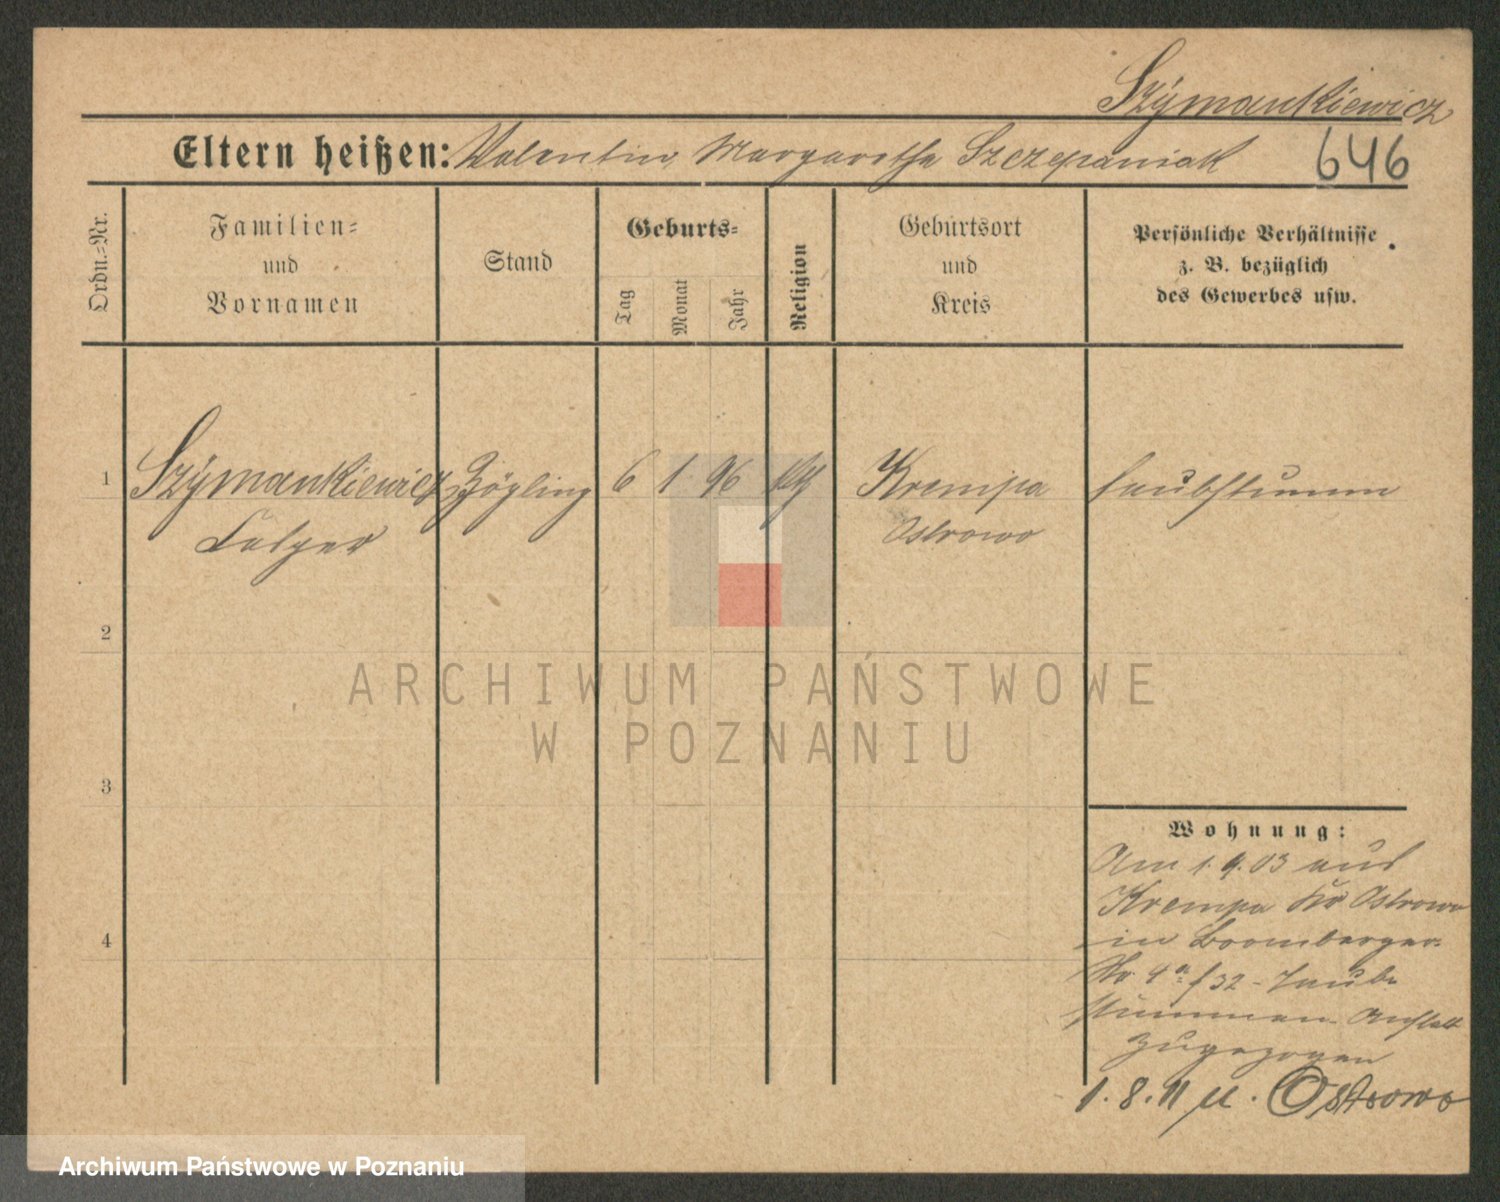 Szymankiewicz
Eltern heißen: Valentin, Margarethe Szczepaniak 646
Ordn.=Nr.
Familien=
und
Vornamen
Stand
Geburts=
Tag
Monat
Jahr
Religion
Geburtsort
und
Kreis
Persönliche Verhältnisse
z. B. bezüglich
des Gewerbes usw.
1 Szymankiewicz Zögling 6 1. 96 kth Krempa taubstumm
Ostrowo
2
3
4
Wohnung:
Am 1.9.03 aus
Krempa Kr Ostrowo
in Bromberger-
str 4a / 32 - Taub-
stummen Anstalt
zugezogen
1.8.11 u. Ostrowo
ARCHIWUM PAŃSTWOWE
W POZNANIU
Archiwum Państwowe w Poznaniu